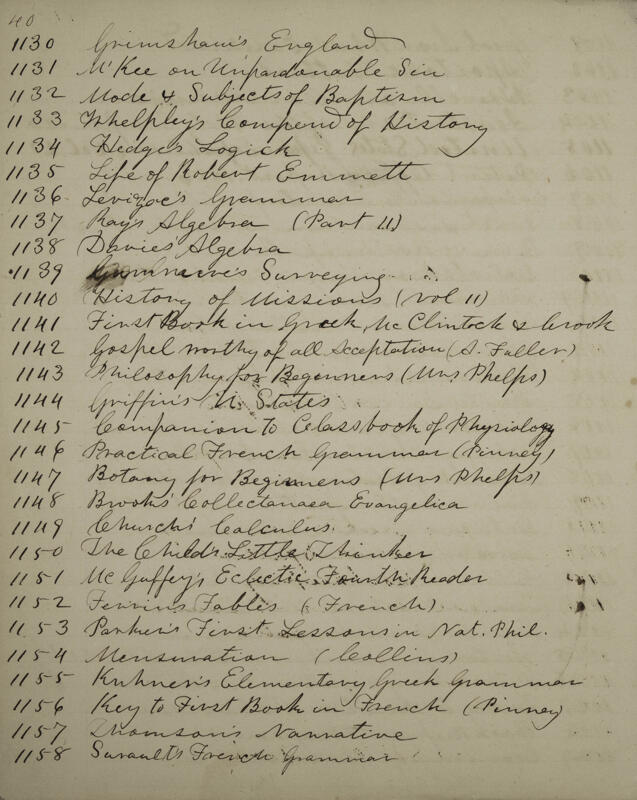 40
1130 Grimshaw's England
1131 M'Kee on Unpardonable Sin
1132 Mode & Subjects of Baptism
1133 Whelpley's Compend of History
1134 Hedges Logick
1135 Life of Robert Emmett
1136 Levizac's Grammar
1137 Rays Algebra (Part II)
1138 Davies' Algebra
1139 Gummere's Surveying
1140 History of Missions (vol II)
1141 First Book in Greek, McClintock & Crook
1142 Gospel worthy of all Acceptation (A. Fuller)
1143 Philosophy for Beginners (Mrs Phelps)
1144 Griffin's U. States
1145 Companion to Classbook of Physiology
1146 Practical French Grammar (Pinney)
1147 Botany for Beginners (Mrs Phelps)
1148 Brooks' Collectanaea Evangelica
1149 Church's Calculus.
1150 The Childs Little Thinker
1151 McGuffey's Eclectic Fourth Reader
1152 Ferrins Fables (French)
1153 Parker's First Lessons in Nat. Phil.
1154 Mensuration (Collins)
1155 Kuhner's Elementary Greek Grammar
1156 Key to First Book in French (Pinney)
1157 Thomson's Narrative
1158 Surault's French Grammar